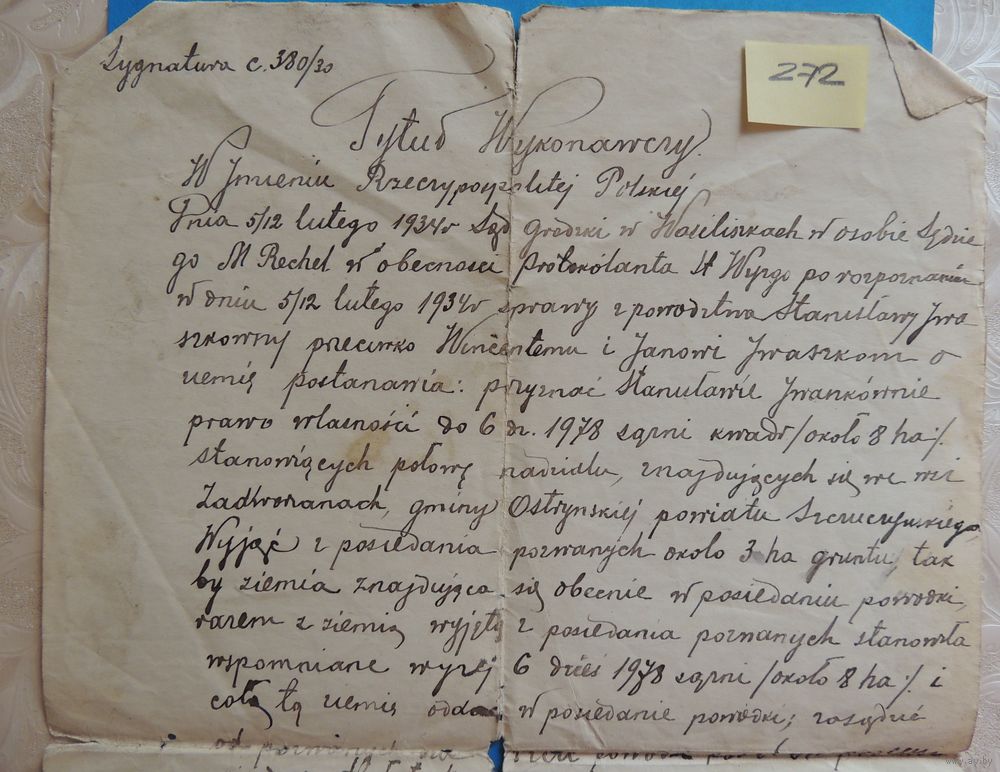 Sygnatura c. 380/30
272
Tytuł Wykonawczy.
W Jmieniu Rzeczypospolitej Polskiej
Dnia 5/12 lutego 1934r Sąd grodzki w Wasiliszkach w osobie Sędzie
go M Rechel w obecności protokólanta St Wyrgo po rozpoznaniu
w dniu 5/12 lutego 1934r sprawy z powodztwa Stanisławy Jwa
szkowny przeciwko Wincentemu i Janowi Jwaszkom o
ziemię postanawia: przyznać Stanisławie Jwankównie
prawo własności do 6 dz. 1978 sązni kwadr /około 8 ha/.
stanowiących połowę nadziału, znajdujących się we wsi
Zadworzanach, gminy Ostrynskiej powiatu Szczuczynskiego,
Wyjąć z posiedania pozwanych około 3 ha gruntu, tak
by ziemia znajdująca się obecnie w posiedaniu powodki,
razem z ziemią wyjętą z posiedania pozwanych stanowiła
wspomniane wyżej 6 dzieś 1978 sązni /około 8 ha/. i
całą tą ziemię oddać w posiedanie powodki; zasądzić
od pozwanych